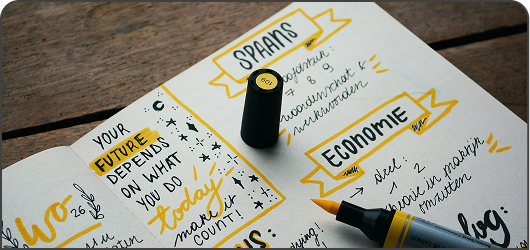 YOUR
FUTURE
DEPENDS
ON WHAT
YOU DO
today
make it
COUNT!
SPAANS
hoofdstuk:
7 8 9
woordenschat &
werkwoorden
ECONOMIE
deel:
1 2
theorie in praktijk
omzetten
wo
26